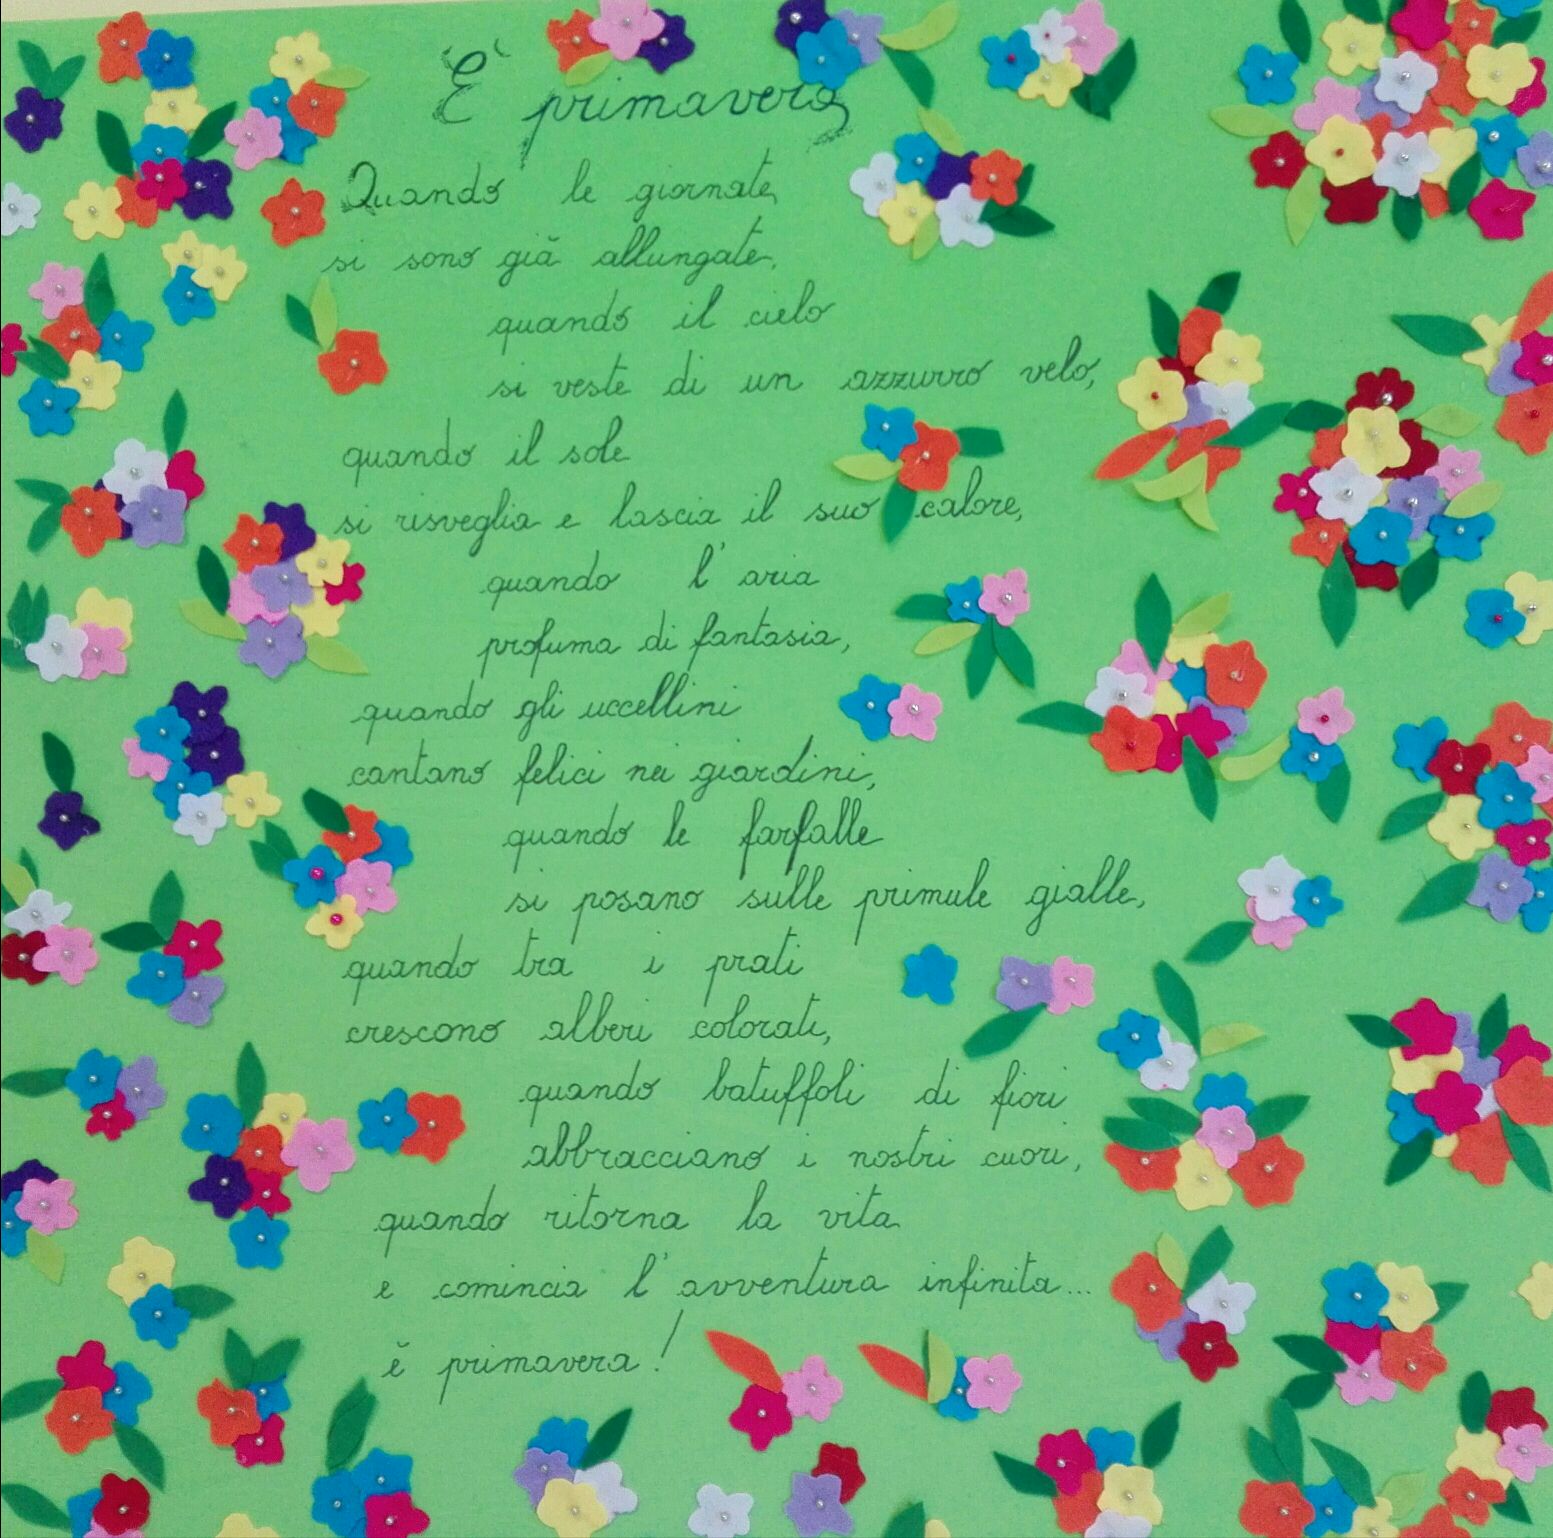 È primavera
Quando le giornate
si sono già allungate,
quando il cielo
si veste di un azzurro velo,
quando il sole
si risveglia e lascia il suo calore,
quando l'aria
profuma di fantasia,
quando gli uccellini
cantano felici nei giardini,
quando le farfalle
si posano sulle primule gialle,
quando tra i prati
crescono alberi colorati,
quando batuffoli di fiori
abbracciano i nostri cuori,
quando ritorna la vita
e comincia l'avventura infinita...
è primavera!